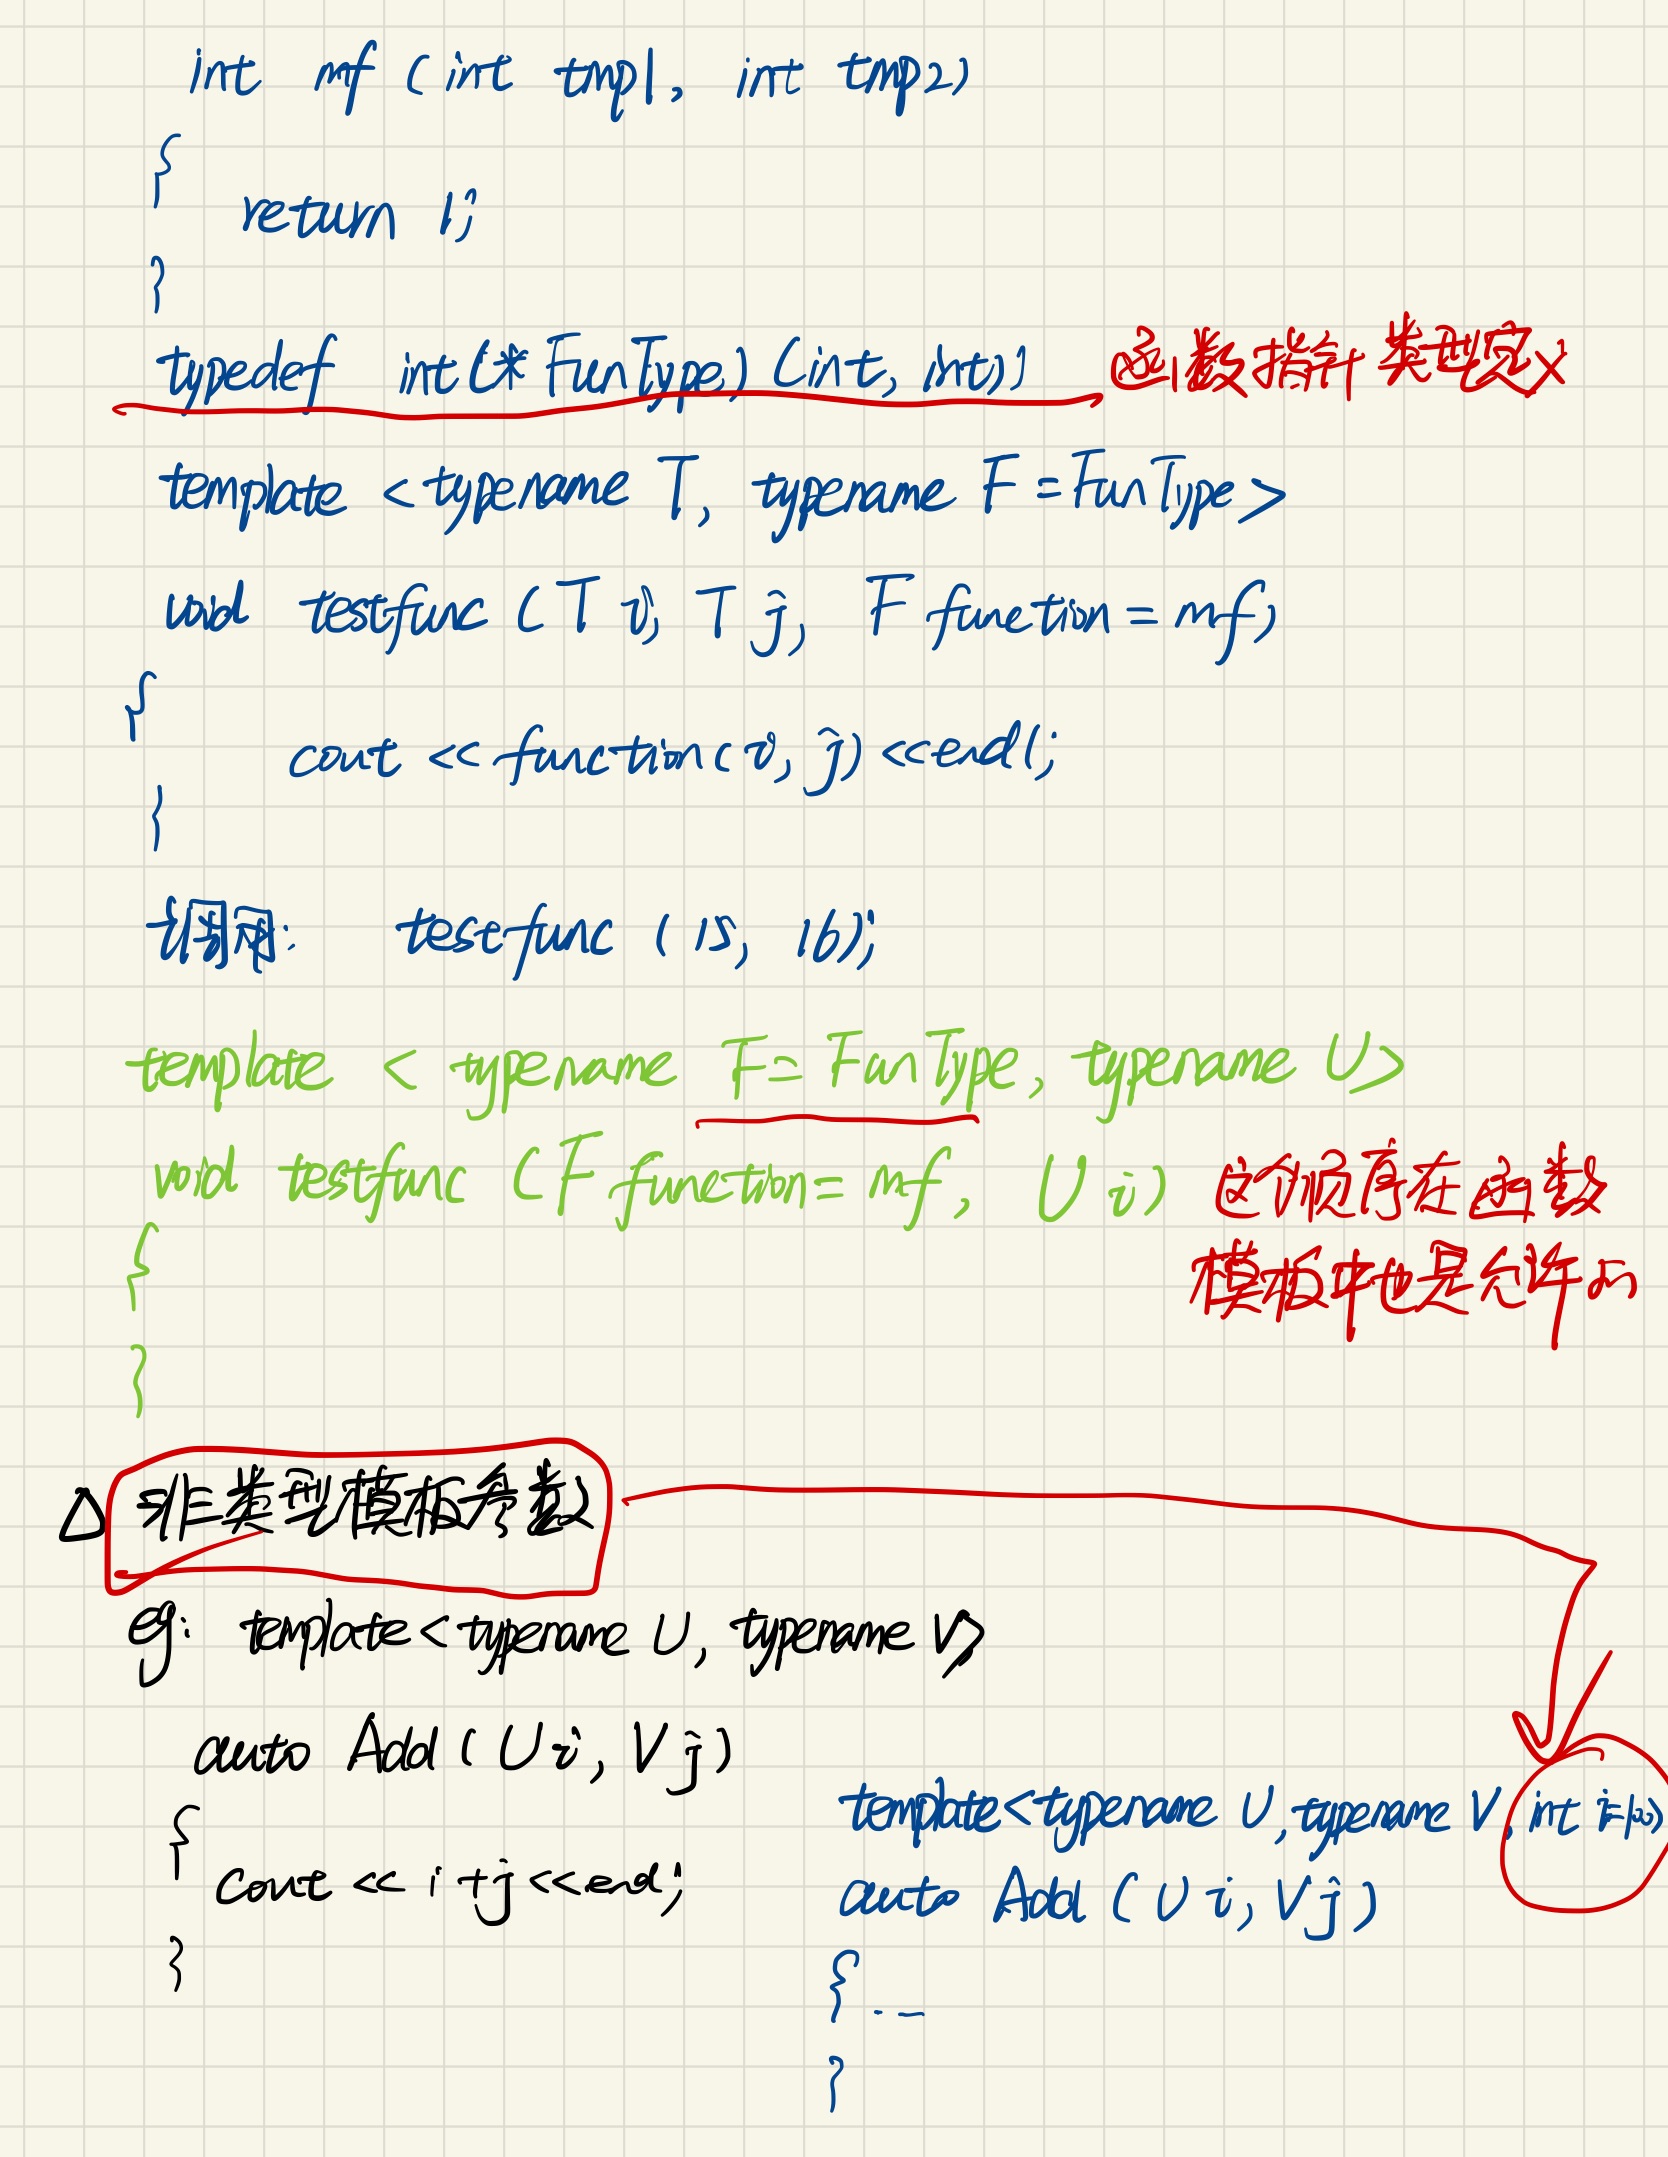 int mf (int tmp1, int tmp2)
{
return 1;
}
typedef int(* FunType) (int, int); 函数指针类型定义
template <typename T, typename F = FunType>
void testfunc (T i, T j, F function = mf)
{
cout << function(i, j) <<endl;
}
调用: testfunc (15, 16);
template < typename F = FunType, typename U>
void testfunc (F function = mf, U i) 这个顺序在函数
模板中也是允许的
{
}
△ 非类型模板参数
eg: template<typename U, typename V>
auto Add ( U i, V j )
{
cout << i + j <<end;
}
template<typename U, typename V, int i=100>
auto Add ( U i, V j )
{ ...
}